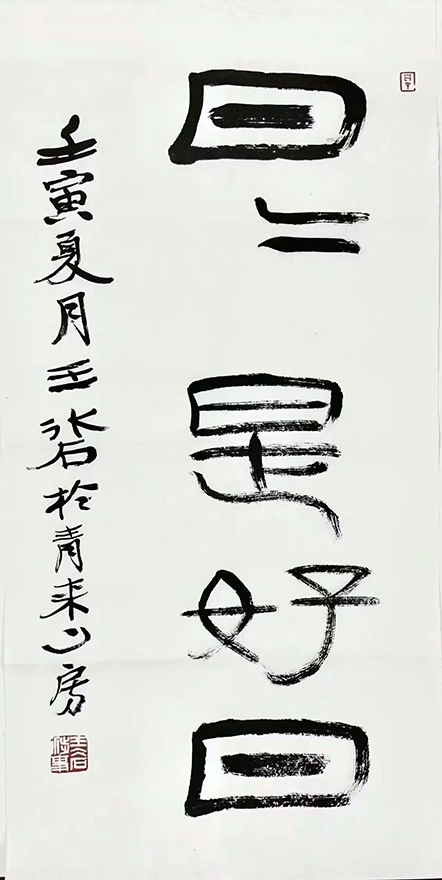 日〻是好日
壬寅夏月王於青来山房